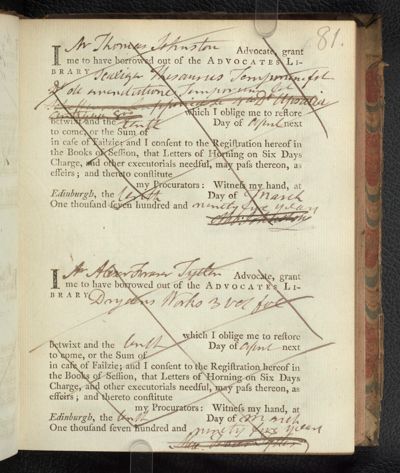 81.
I Mr Thomas Johnston Advocate, grant
me to have borrowed out of the ADVOCATES LI-
BRARY Scaliger Thesaurus Temporum fol
de emendatione Temporum fol
which I oblige me to restore
betwixt and the first Day of April next
to come, or the Sum of
in case of Failzie; and I consent to the Registration hereof in
the Books of Session, that Letters of Horning on Six Days
Charge, and other executorials needful, may pass thereon, as
effeirs; and thereto constitute
my Procurators: Witness my hand, at
Edinburgh, the Day of March
One thousand seven hundred and ninety five years
I Mr Alexr Fraser Tytler Advocate, grant
me to have borrowed out of the ADVOCATES LI-
BRARY Drydens Works 3 vol fol
which I oblige me to restore
betwixt and the Day of April next
to come, or the Sum of
in case of Failzie; and I consent to the Registration hereof in
the Books of Session, that Letters of Horning on Six Days
Charge, and other executorials needful, may pass thereon, as
effeirs; and thereto constitute
my Procurators: Witness my hand, at
Edinburgh, the Day of March
One thousand seven hundred and ninety five years